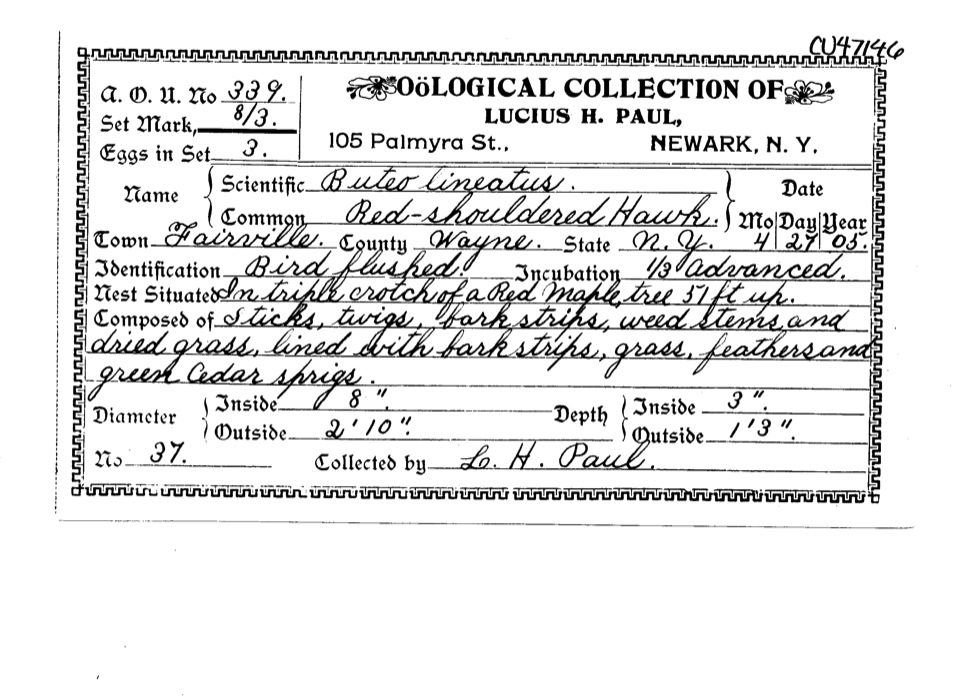 CU47146
A. O. U. No 339.
Set Mark, 8/3.
Eggs in Set 3.
OöLOGICAL COLLECTION OF
LUCIUS H. PAUL,
105 Palmyra St., NEWARK, N. Y.
Name Scientific Buteo lineatus. Date
Common Red-shouldered Hawk. Mo Day Year
Town Fairville. County Wayne. State N. Y. 4 27 05.
Identification Bird flushed. Incubation 1/3 advanced.
Nest Situated In triple crotch of a Red Maple tree 57 ft up.
Composed of Sticks, twigs, bark strips, weed stems, and
dried grass, lined with bark strips, grass, feathers and
green Cedar sprigs.
Diameter Inside 8". Depth Inside 3".
Outside 2'10". Outside 1'3".
No 37. Collected by L. H. Paul.